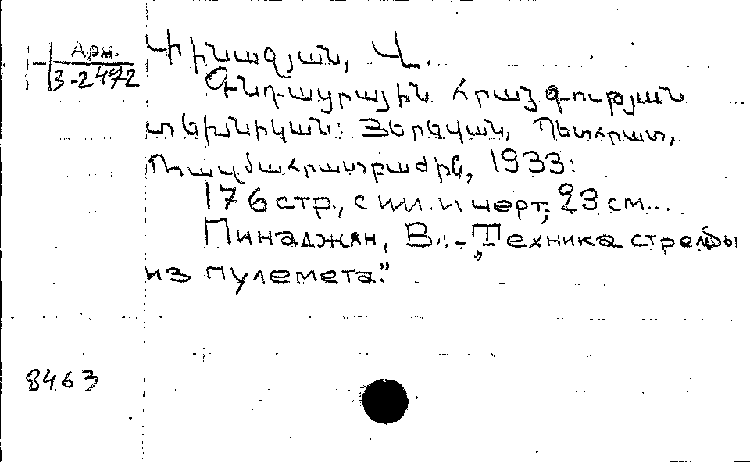 Арм.
3-2472
Փինաջյան, Վ.
Գնդացրային հրաձգության
տեխնիկան: Յերևան, Պետհրատ,
Ռազմահրատբաժին, 1933:
176 стр., с ил. и черт; 23 см...
Пинаджян, В.. - „Техника стрельбы
из пулемета."
8463